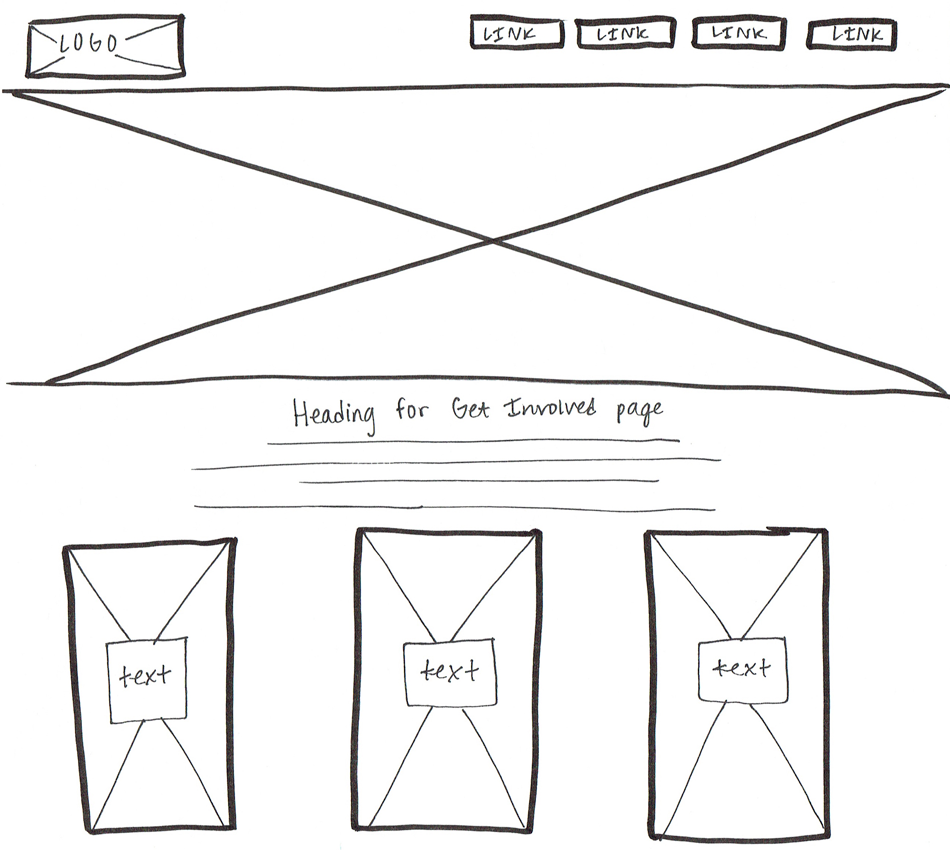 LOGO
LINK LINK LINK LINK
Heading for Get Involved page
text text text